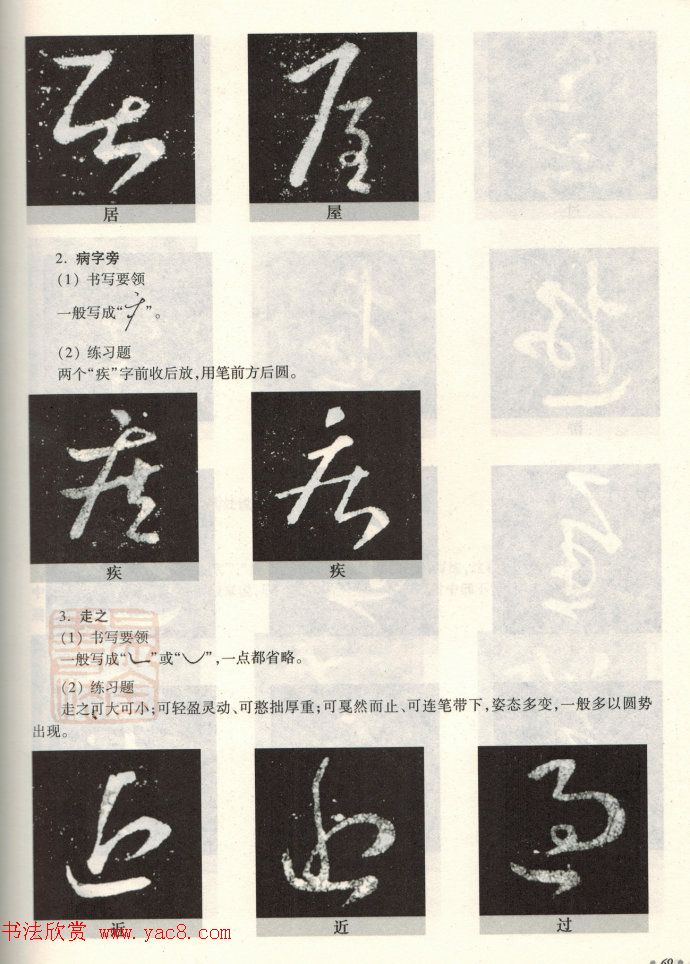 居 屋
2. 病字旁
(1) 书写要领
一般写成“疒”。
(2) 练习题
两个“疾”字前收后放,用笔前方后圆。
疾 疾
3. 走之
(1) 书写要领
一般写成“”或“”,一点都省略。
(2) 练习题
走之可大可小;可轻盈灵动、可憨拙厚重;可戛然而止、可连笔带下,姿态多变,一般多以圆势
出现。
近 过
书法欣赏 www.yac8.com
69